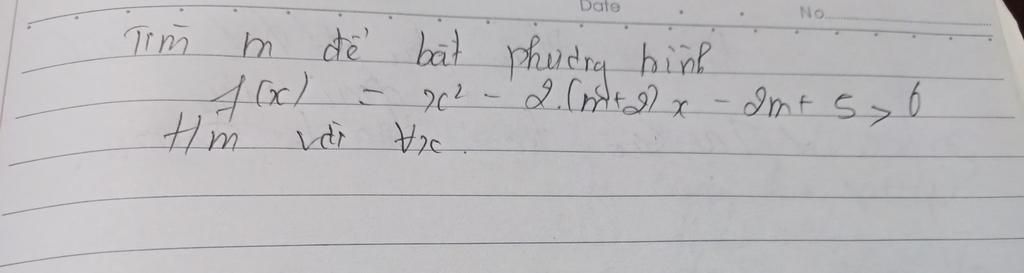 Date No.
Tìm m để bất phương trình
f(x) = x² - 2.(m+2)x - 2m + 5 > 0
t/m với ∀x.